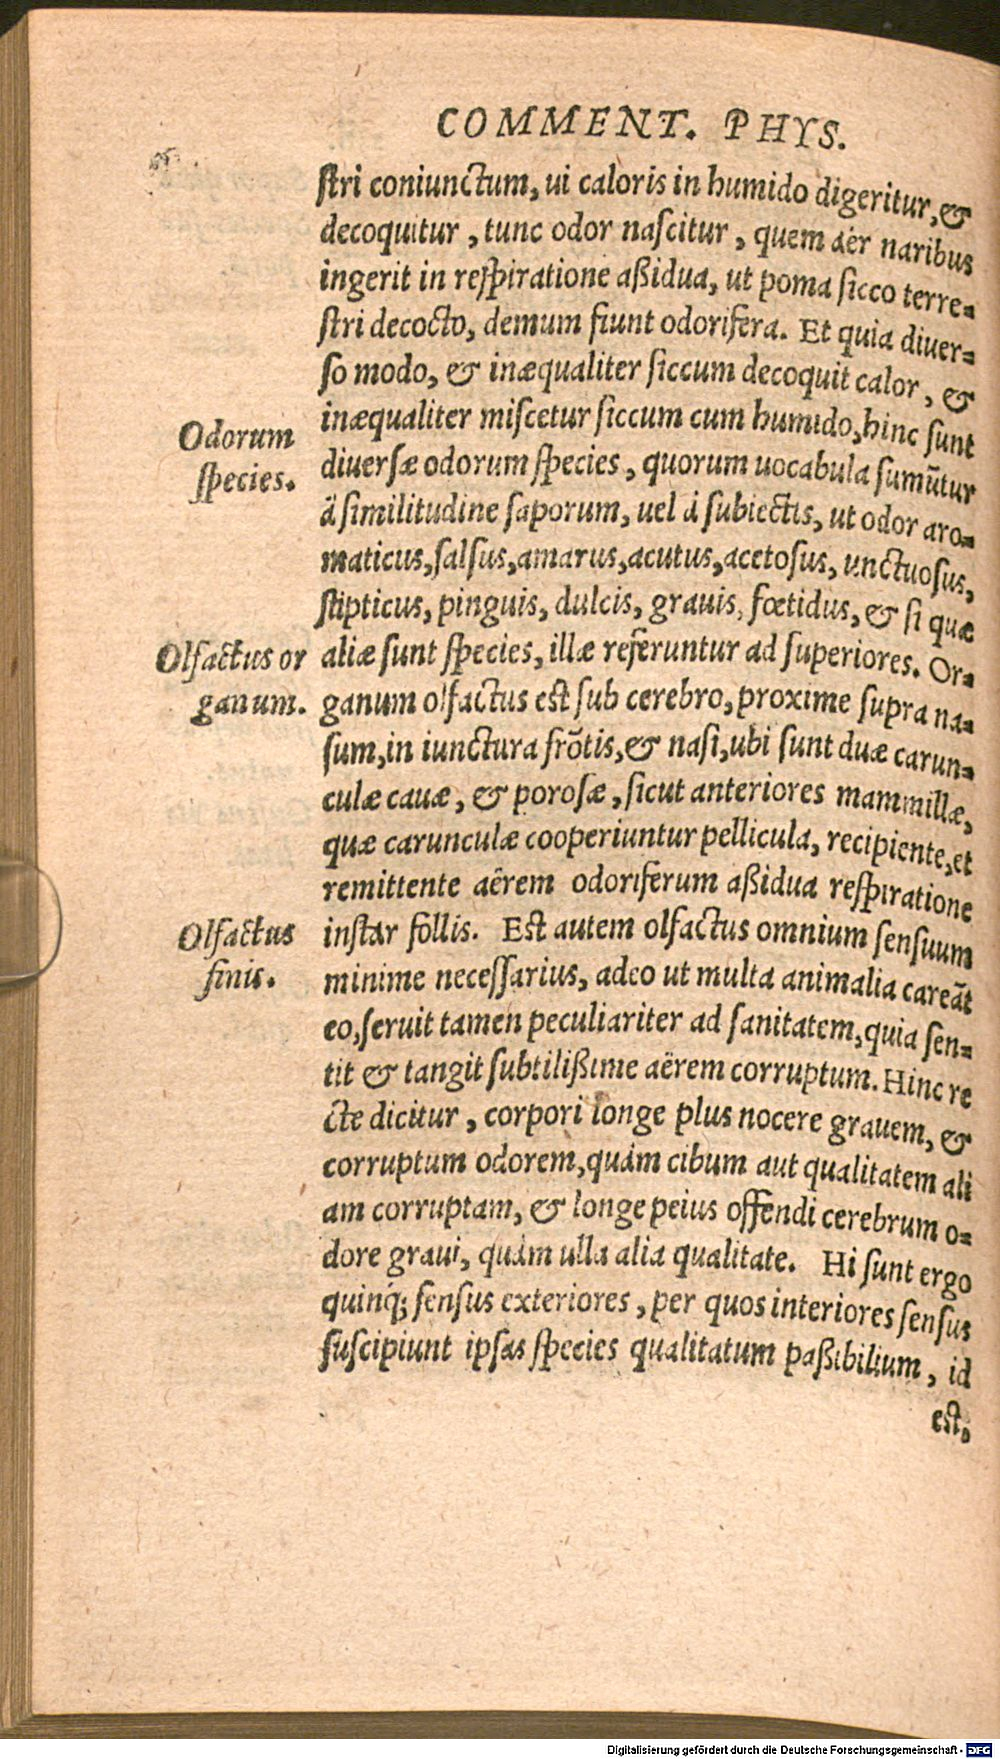 COMMENT. PHYS.
ſtri coniunctum, ui caloris in humido digeritur, &
decoquitur, tunc odor naſcitur, quem aër naribus
ingerit in reſpiratione aßidua, ut poma ſicco terre-
ſtri decocto, demum fiunt odorifera. Et quia diuer-
ſo modo, & inæqualiter ſiccum decoquit calor, &
inæqualiter miſcetur ſiccum cum humido, hinc ſunt
Odorum
ſpecies.
diuerſæ odorum ſpecies, quorum uocabula ſumūtur
à ſimilitudine ſaporum, uel à ſubiectis, ut odor aro-
maticus, ſalſus, amarus, acutus, acetoſus, unctuoſus,
ſtipticus, pinguis, dulcis, grauis, fœtidus, & ſi quæ
aliæ ſunt ſpecies, illæ referuntur ad ſuperiores. Or-
Olfactus or
ganum.
ganum olfactus eſt ſub cerebro, proxime ſupra na-
ſum, in iunctura frōtis, & naſi, ubi ſunt duæ carun-
culæ cauæ, & poroſæ, ſicut anteriores mammillæ,
quæ carunculæ cooperiuntur pellicula, recipiente, et
remittente aërem odoriferum aßidua reſpiratione
inſtar follis. Eſt autem olfactus omnium ſenſuum
Olfactus
finis.
minime neceſſarius, adeo ut multa animalia careāt
eo, ſeruit tamen peculiariter ad ſanitatem, quia ſen-
tit & tangit ſubtilißime aërem corruptum. Hinc re
cte dicitur, corpori longe plus nocere grauem, &
corruptum odorem, quàm cibum aut qualitatem ali
am corruptam, & longe peius offendi cerebrum o-
dore graui, quàm ulla alia qualitate. Hi ſunt ergo
quinq́; ſenſus exteriores, per quos interiores ſenſus
ſuſcipiunt ipſas ſpecies qualitatum paßibilium, id
eſt,
Digitalisierung gefördert durch die Deutsche Forschungsgemeinschaft - DFG